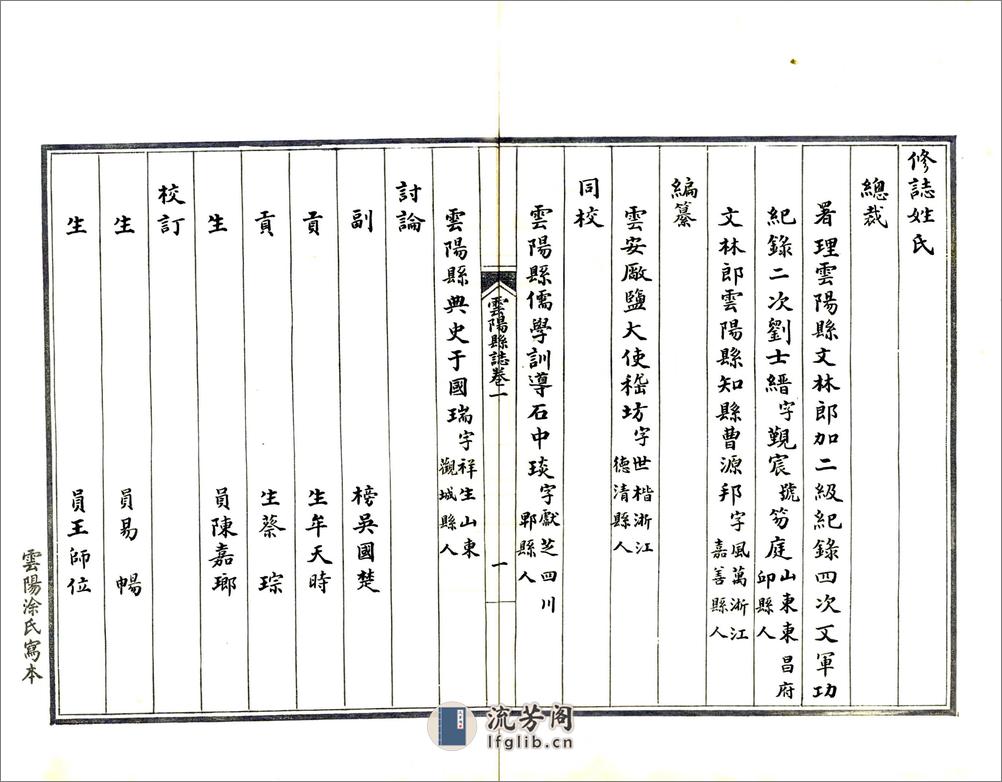 修誌姓氏
總裁
署理雲陽縣文林郎加二級紀錄四次又軍功
紀錄二次劉士縉字覲宸號笏庭山東東昌府
邱縣人
文林郎雲陽縣知縣曹源邦字風萬浙江
嘉善縣人
編纂
雲安厰鹽大使嵇坊字世楷浙江
德清縣人
同校
雲陽縣儒學訓導石中琰字獻芝四川
郫縣人
雲陽縣誌卷一
一
雲陽縣典史于國瑞字祥生山東
觀城縣人
討論
副榜吳國楚
貢生牟天時
貢生蔡琮
生員陳嘉瑯
校訂
生員易暢
生員王師位
雲陽涂氏寫本
流芳阁
lfglib.cn